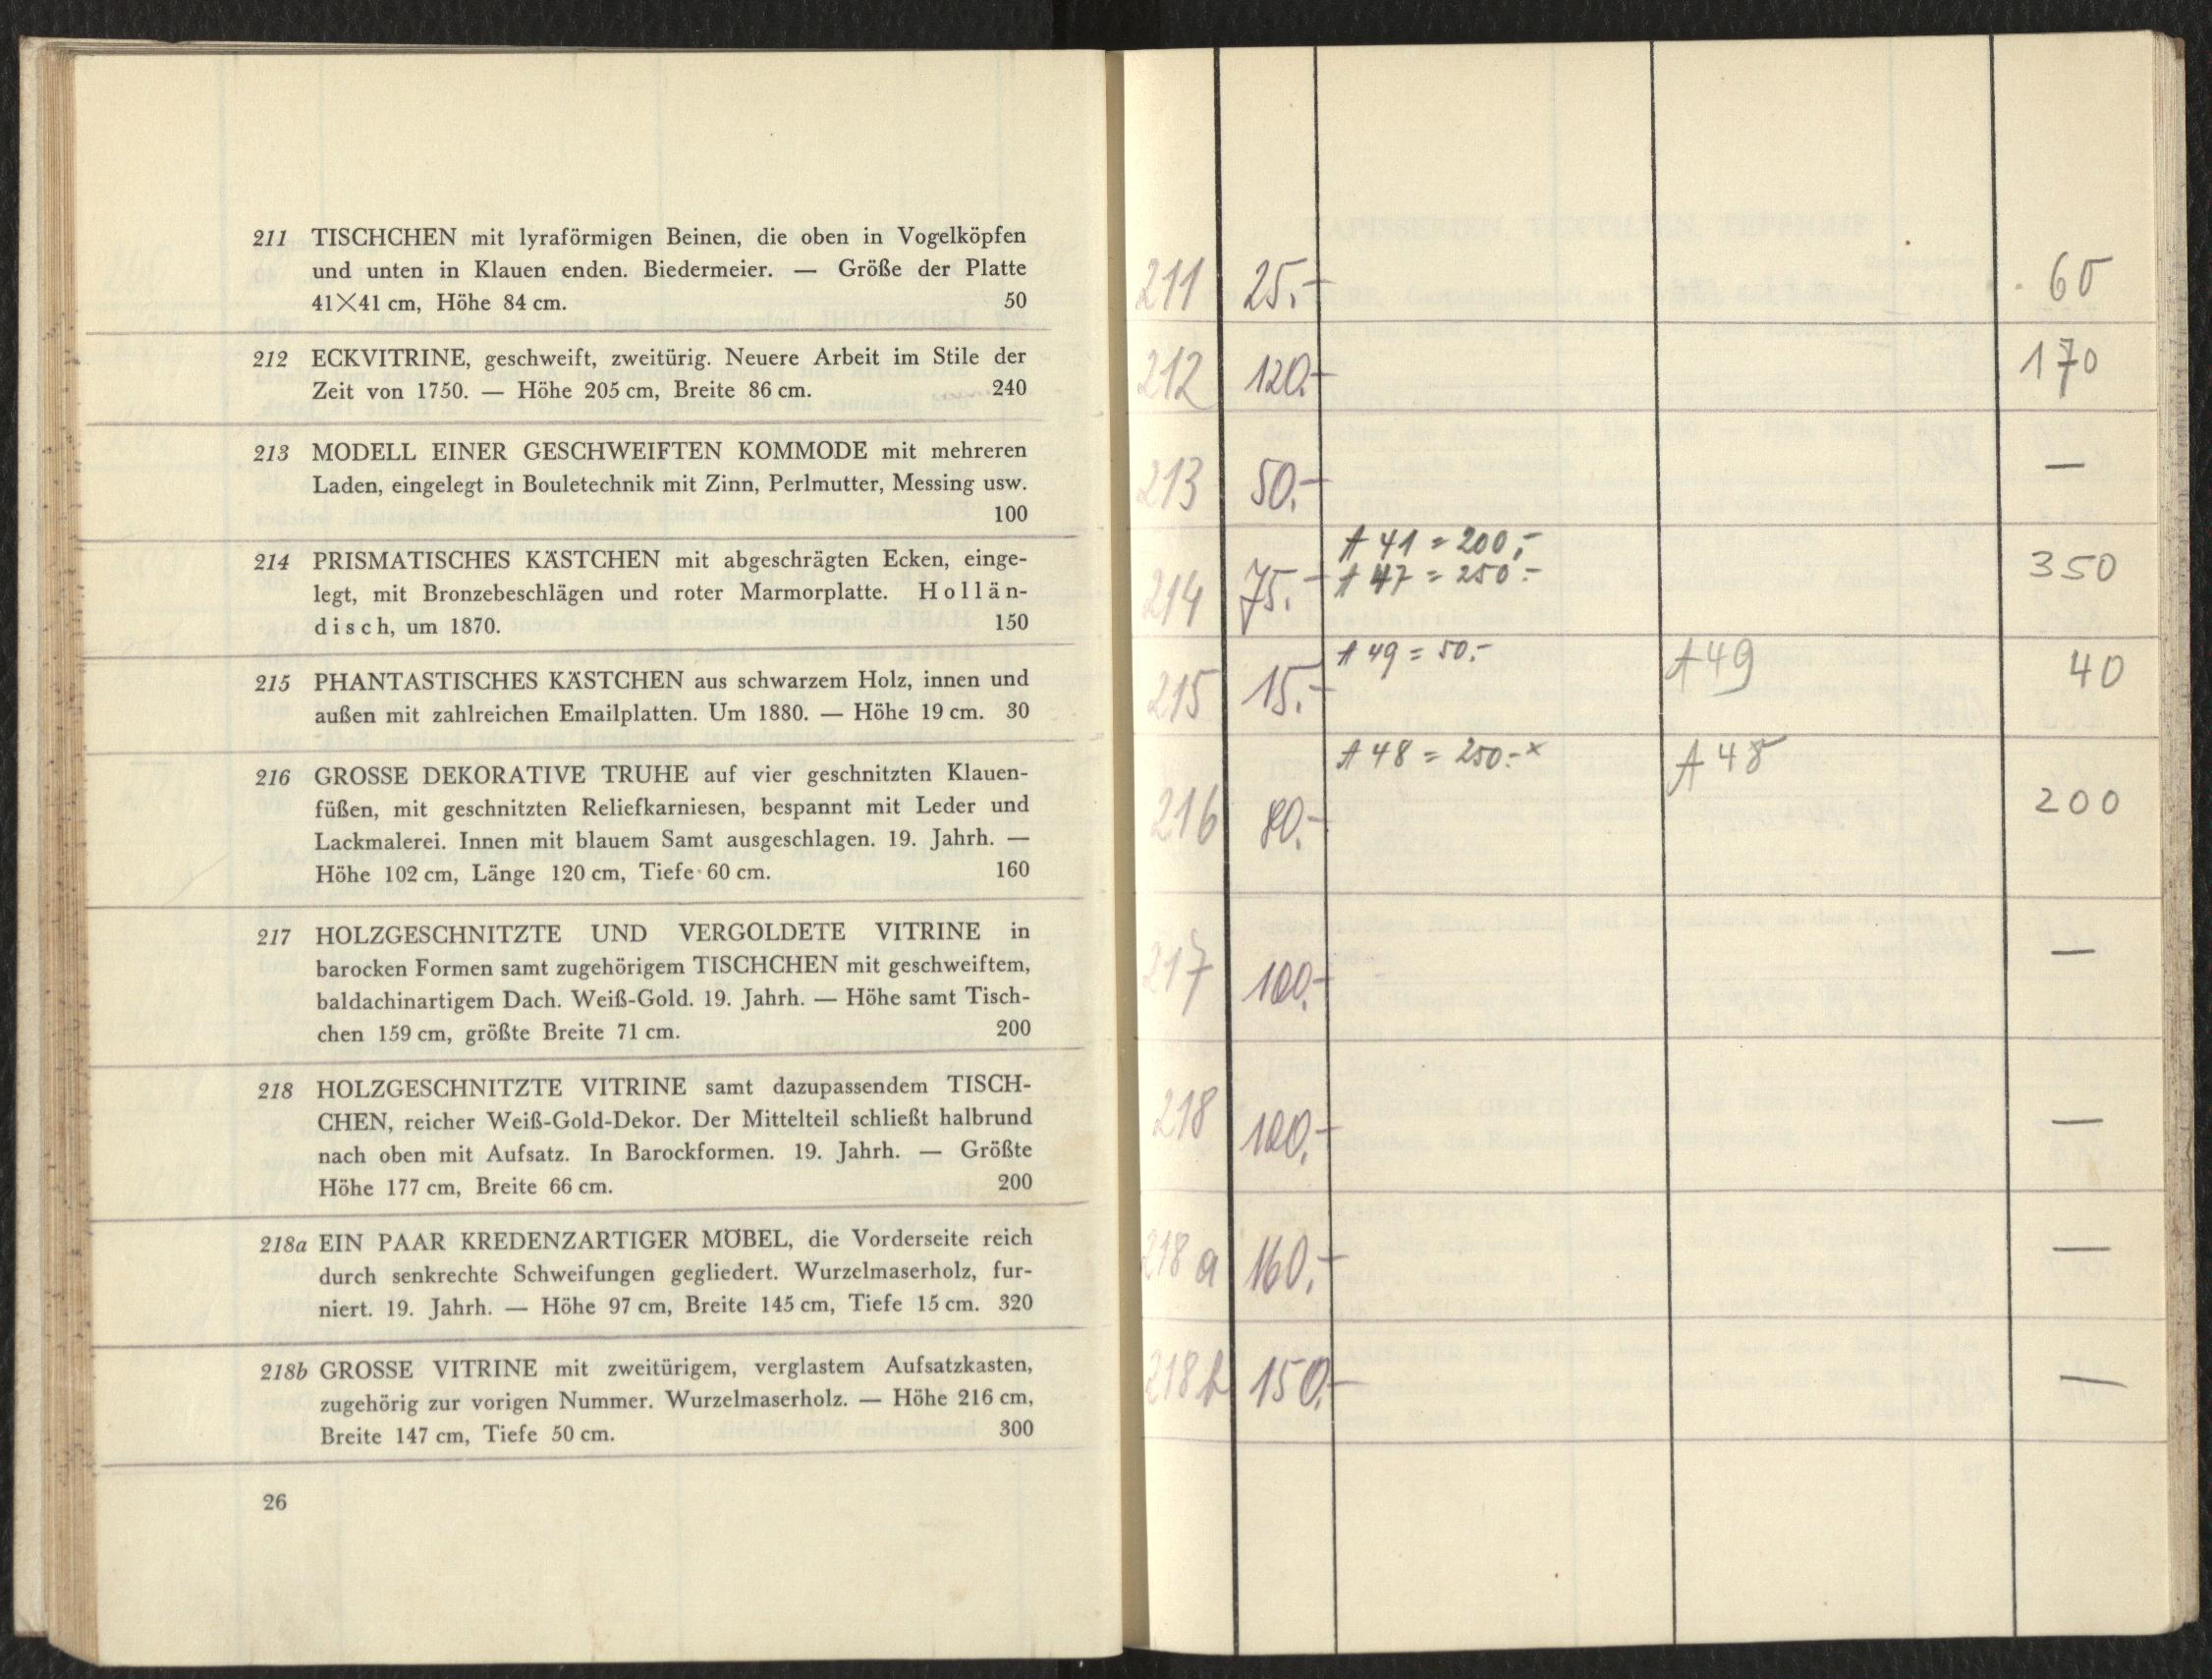 211 TISCHCHEN mit lyraförmigen Beinen, die oben in Vogelköpfen
und unten in Klauen enden. Biedermeier. — Größe der Platte
41×41 cm, Höhe 84 cm. 50
212 ECKVITRINE, geschweift, zweitürig. Neuere Arbeit im Stile der
Zeit von 1750. — Höhe 205 cm, Breite 86 cm. 240
213 MODELL EINER GESCHWEIFTEN KOMMODE mit mehreren
Laden, eingelegt in Bouletechnik mit Zinn, Perlmutter, Messing usw.
100
214 PRISMATISCHES KÄSTCHEN mit abgeschrägten Ecken, einge-
legt, mit Bronzebeschlägen und roter Marmorplatte. Hollän-
disch, um 1870. 150
215 PHANTASTISCHES KÄSTCHEN aus schwarzem Holz, innen und
außen mit zahlreichen Emailplatten. Um 1880. — Höhe 19 cm. 30
216 GROSSE DEKORATIVE TRUHE auf vier geschnitzten Klauen-
füßen, mit geschnitzten Reliefkarniesen, bespannt mit Leder und
Lackmalerei. Innen mit blauem Samt ausgeschlagen. 19. Jahrh. —
Höhe 102 cm, Länge 120 cm, Tiefe 60 cm. 160
217 HOLZGESCHNITZTE UND VERGOLDETE VITRINE in
barocken Formen samt zugehörigem TISCHCHEN mit geschweiftem,
baldachinartigem Dach. Weiß-Gold. 19. Jahrh. — Höhe samt Tisch-
chen 159 cm, größte Breite 71 cm. 200
218 HOLZGESCHNITZTE VITRINE samt dazupassendem TISCH-
CHEN, reicher Weiß-Gold-Dekor. Der Mittelteil schließt halbrund
nach oben mit Aufsatz. In Barockformen. 19. Jahrh. — Größte
Höhe 177 cm, Breite 66 cm. 200
218a EIN PAAR KREDENZARTIGER MÖBEL, die Vorderseite reich
durch senkrechte Schweifungen gegliedert. Wurzelmaserholz, fur-
niert. 19. Jahrh. — Höhe 97 cm, Breite 145 cm, Tiefe 15 cm. 320
218b GROSSE VITRINE mit zweitürigem, verglastem Aufsatzkasten,
zugehörig zur vorigen Nummer. Wurzelmaserholz. — Höhe 216 cm,
Breite 147 cm, Tiefe 50 cm. 300
26
211 25.- 60
212 120.- 170
213 50.- —
A 41 = 200,-
214 75.- A 47 = 250.- 350
A 49 = 50.- A 49
215 15.- 40
A 48 = 250.-x A 48
216 80.- 200
217 100.- —
218 100.- —
218a 160.- —
218b 150.- —